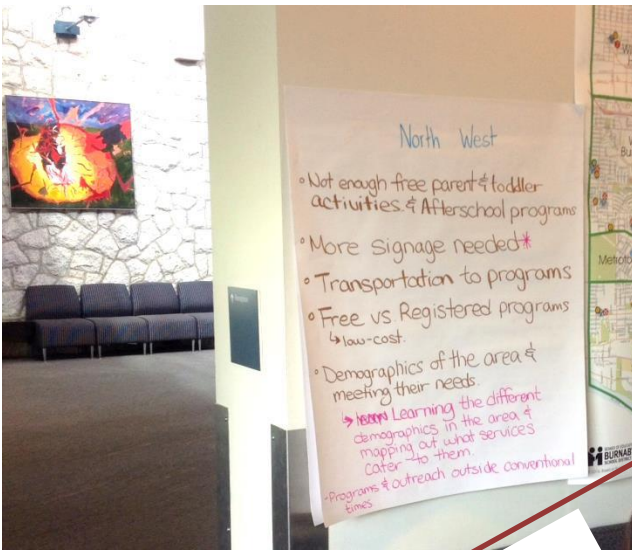 North West
◦ Not enough free parent & toddler
activities & Afterschool programs
◦ More signage needed*
◦ Transportation to programs
◦ Free vs Registered programs
↳ low-cost.
◦ Demographics of the area &
meeting their needs.
↳ Learning the different
demographics in the area &
mapping out what services
cater to them.
- Programs & outreach outside conventional
times
Metroto
BURNAB